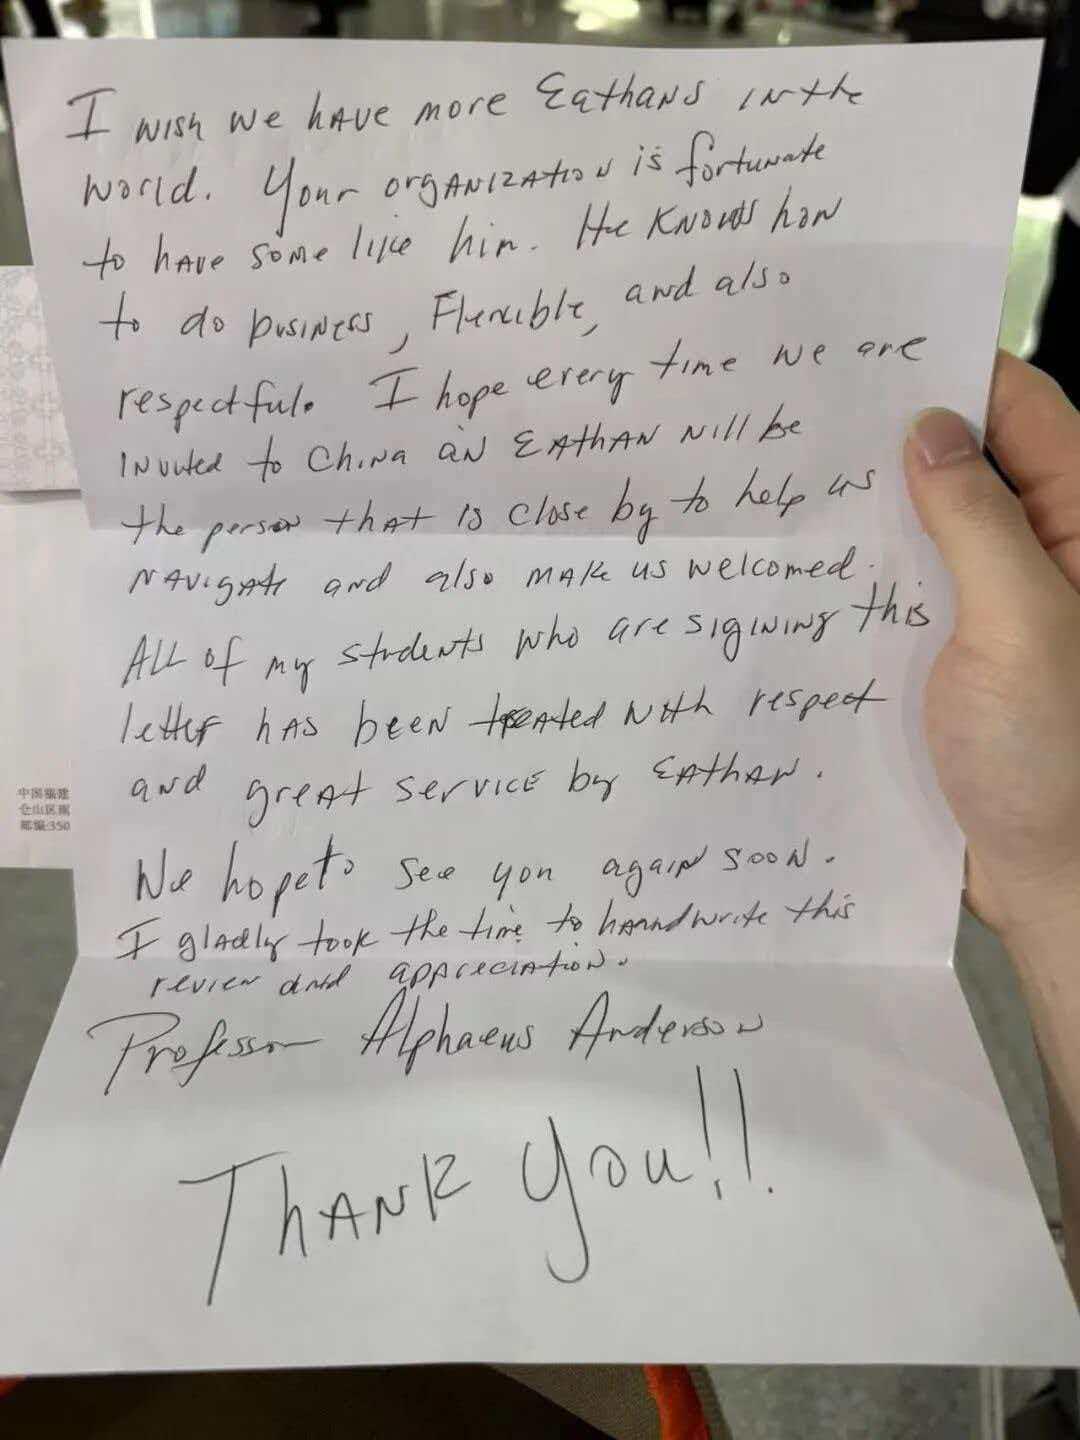 I wish we have more Eathans in the
world. Your organization is fortunate
to have some like him. He knows how
to do business, Flexible, and also
respectful. I hope every time we are
invited to China an Eathan will be
the person that is close by to help us
navigate and also make us welcomed.
All of my students who are sigining this
letter has been treated with respect
and great service by Eathan.
We hope to see you again soon.
I gladly took the time to handwrite this
review and appreciation.
Professor Alphaeus Anderson
Thank You!!
中国福建
仓山区
邮编:350